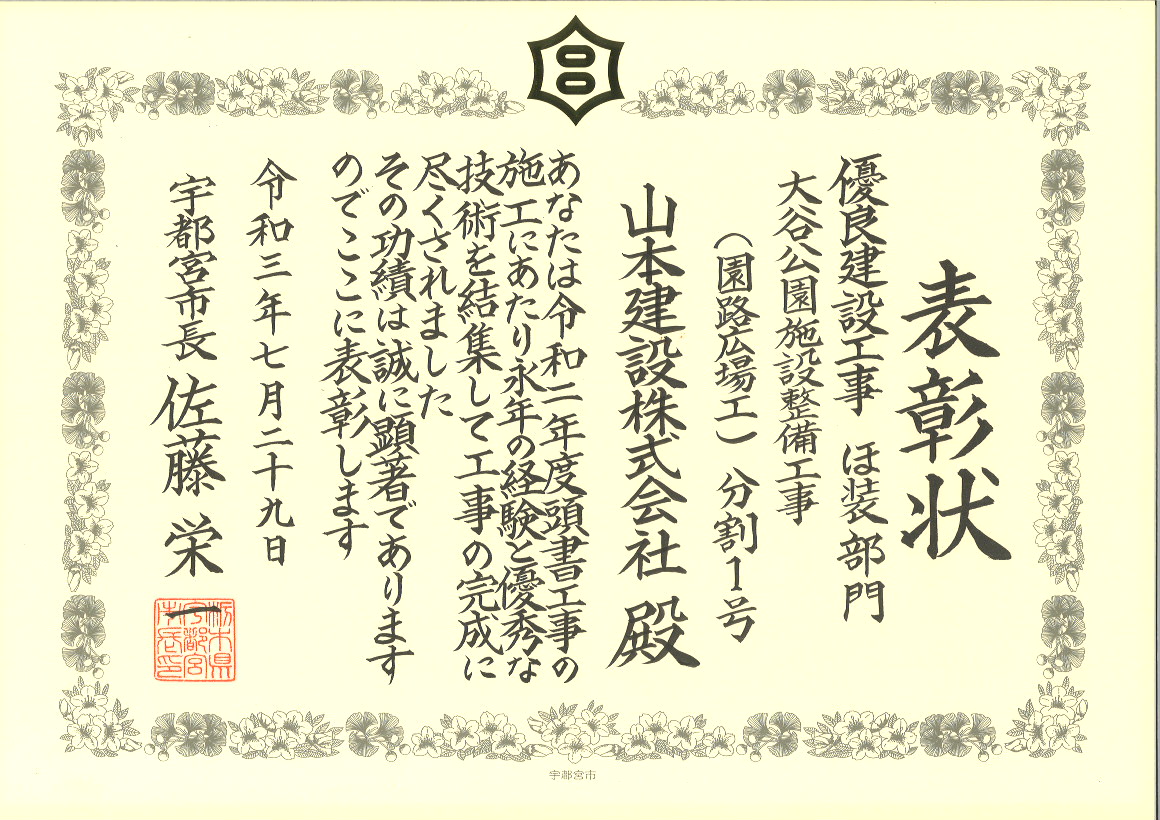 表彰状
優良建設工事 ほ装部門
大谷公園施設整備工事
(園路広場工) 分割1号
山本建設株式会社 殿
あなたは令和二年度頭書工事の
施工にあたり永年の経験と優秀な
技術を結集して工事の完成に
尽くされました
その功績は誠に顕著であります
のでここに表彰します
令和三年七月二十九日
宇都宮市長 佐藤栄一
栃木県
宇都宮
市長印
宇都宮市